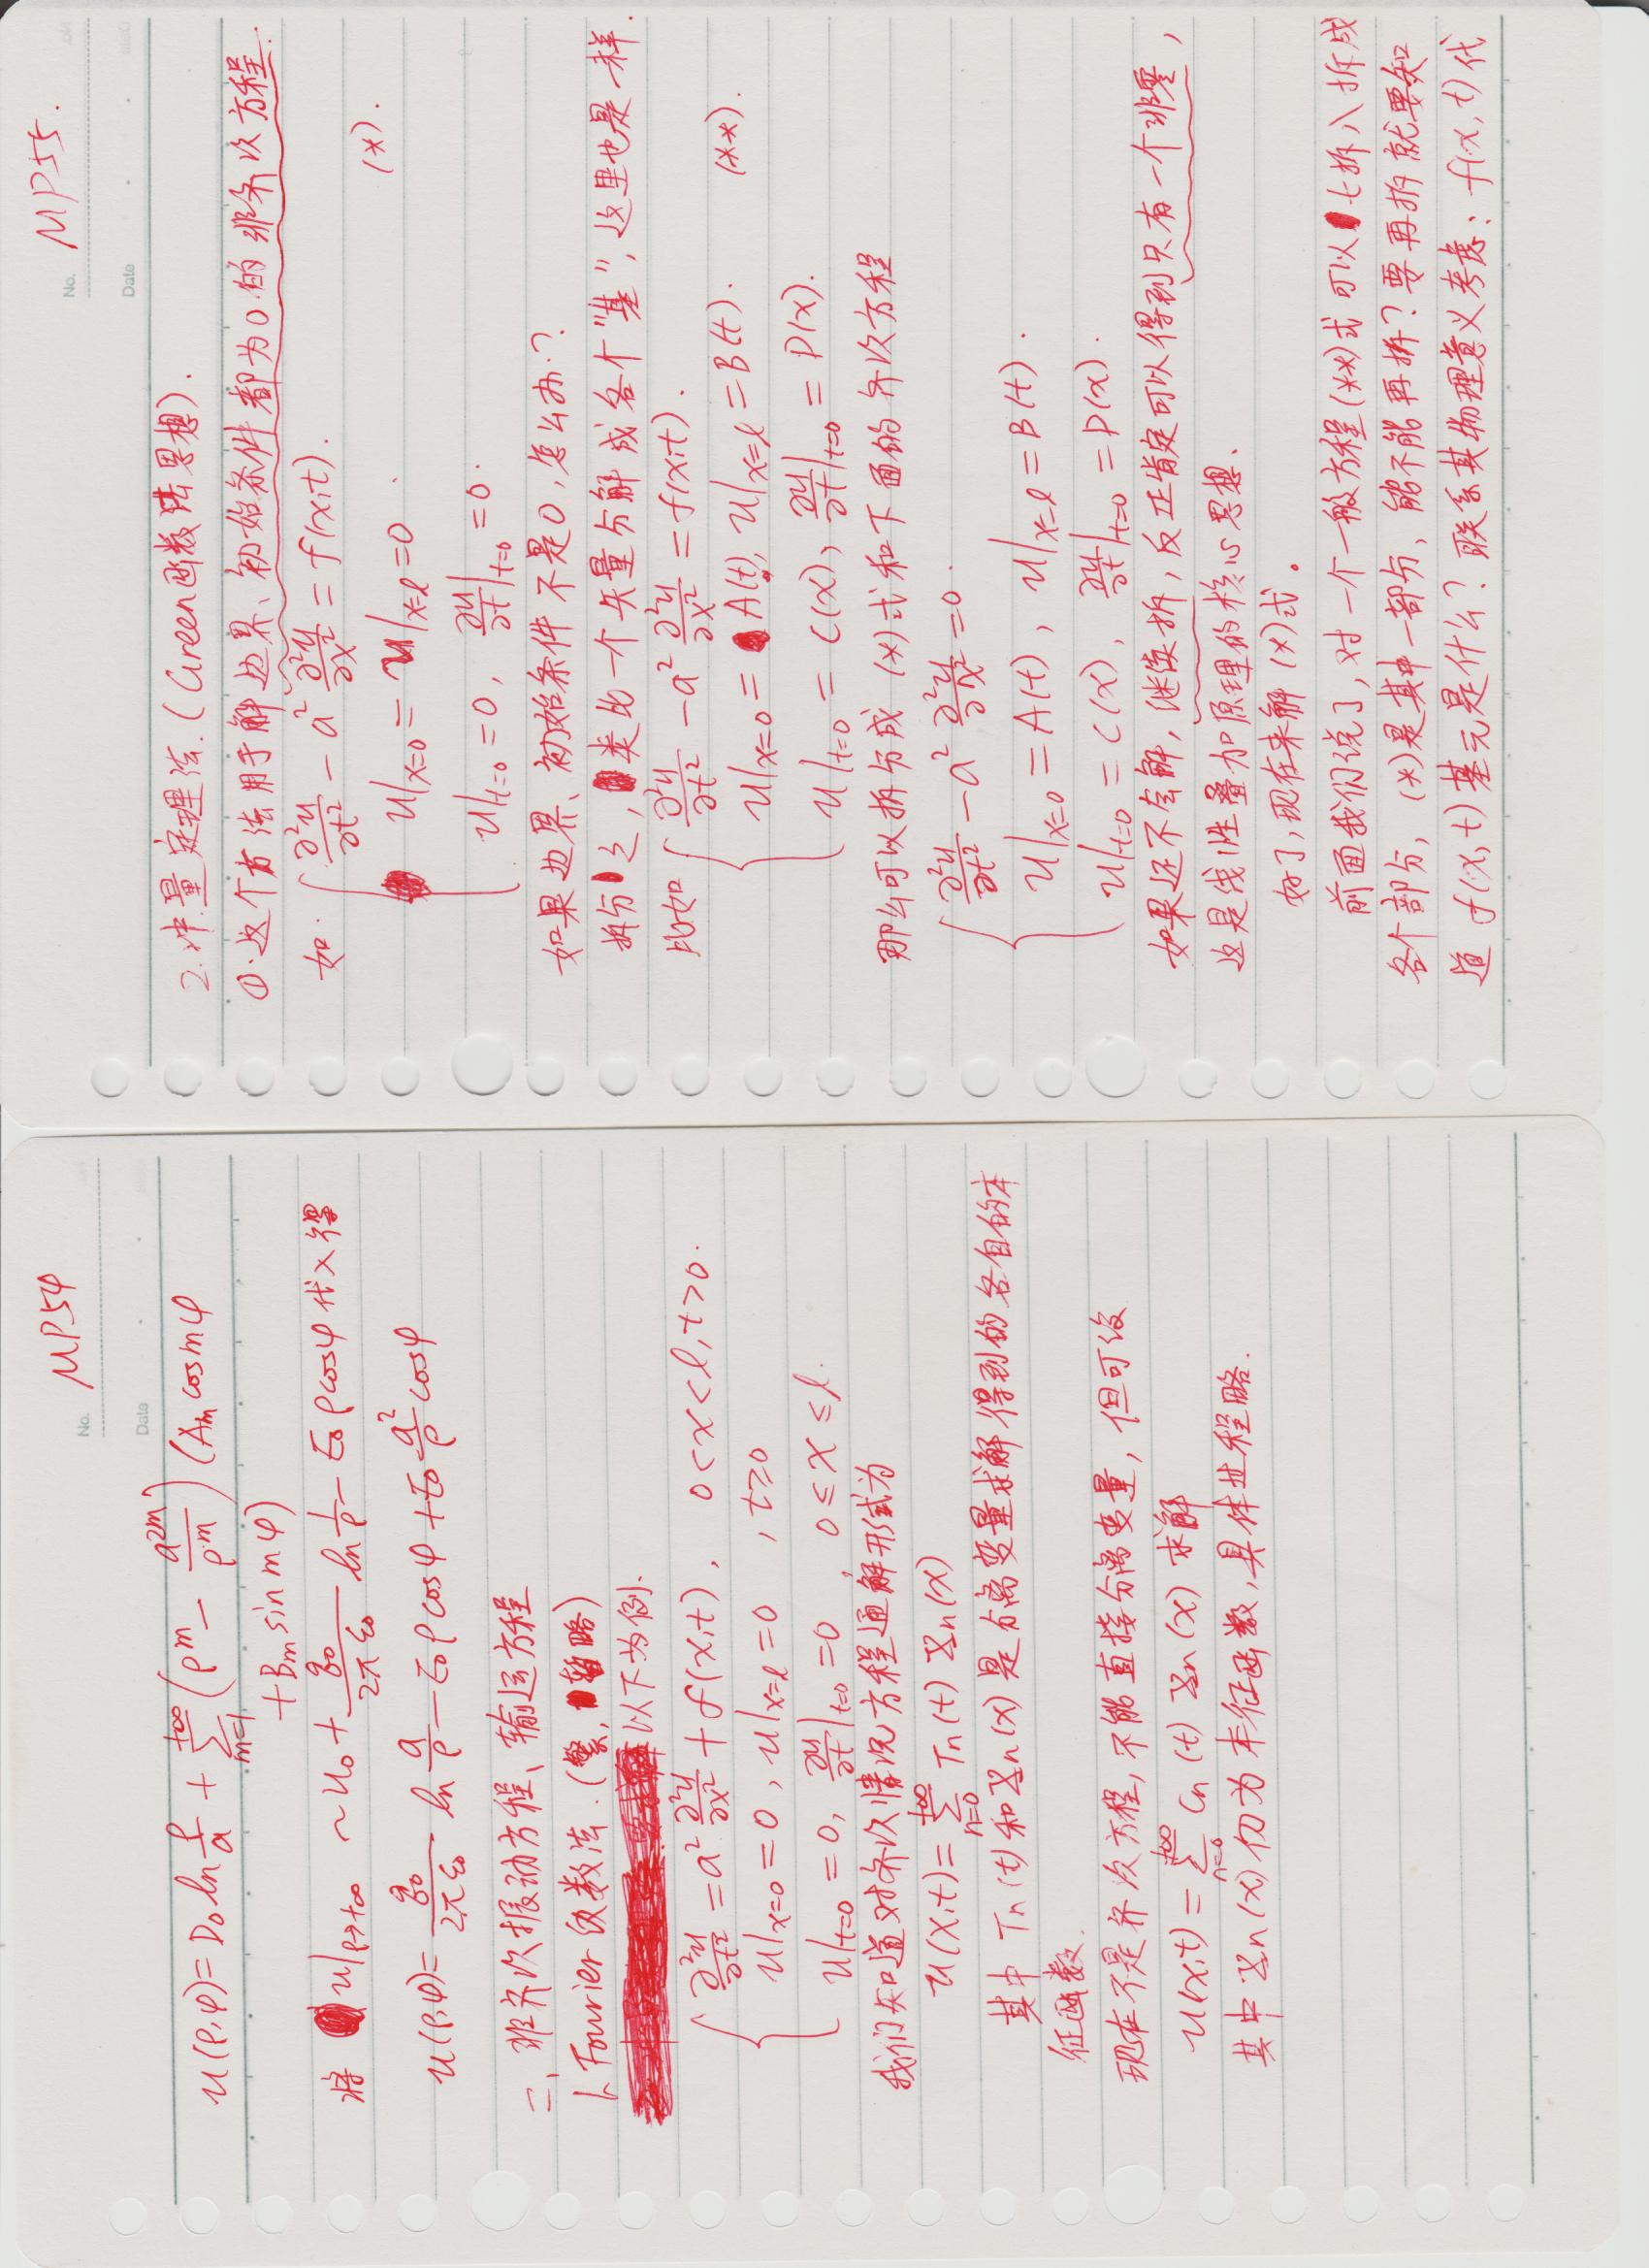 No. MP54
Date
u(ρ,φ)=D₀ ln ρ/a + ∑_{m=1}^{+∞} (ρ^m − a^{2m}/ρ^m) (A_m cos mφ
+B_m sin mφ)
将 u|_{ρ→+∞} ~ u₀ + q₀/(2πε₀) ln 1/ρ − E₀ρcosφ 代入得
u(ρ,φ)= q₀/(2πε₀) ln a/ρ − E₀ρcosφ + E₀ a²/ρ cosφ
二、非齐次振动方程、输运方程
1. Fourier级数法.(繁, 暂略)
以下为例.
∂²u/∂t² = a² ∂²u/∂x² + f(x,t), 0<x<l, t>0.
u|_{x=0} = 0, u|_{x=l} = 0 , t≥0
u|_{t=0} = 0, ∂u/∂t|_{t=0} = 0 , 0≤x≤l.
我们知道对齐次情况方程通解形式为
u(x,t)= ∑_{n=0}^{+∞} Tn(t) Xn(x)
其中 Tn(t)和Xn(x)是分离变量求解得到的各自的本
征函数.
现在不是齐次方程,不能直接分离变量,但可设
u(x,t) = ∑_{n=0}^{+∞} Cn(t) Xn(x) 求解
其中Xn(x)仍为本征函数,具体过程略.
No. MP55.
Date
2.冲量定理法.(Green函数法思想).
①.这个方法用于解边界、初始条件都为0的非齐次方程.
如. ∂²u/∂t² − a² ∂²u/∂x² = f(x,t).
u|_{x=0} = u|_{x=l} = 0 . (*).
u|_{t=0} = 0, ∂u/∂t|_{t=0} = 0.
如果边界、初始条件不是0,怎么办.?
拆分之,类比一个矢量分解成各个"基",这里也是一样.
比如 ∂²u/∂t² − a² ∂²u/∂x² = f(x,t).
u|_{x=0} = A(t), u|_{x=l} = B(t). (**).
u|_{t=0} = C(x), ∂u/∂t|_{t=0} = D(x).
那么可以拆分成 (*)式和下面的齐次方程
∂²u/∂t² − a² ∂²u/∂x² = 0.
u|_{x=0} = A(t), u|_{x=l} = B(t).
u|_{t=0} = C(x), ∂u/∂t|_{t=0} = D(x).
如果还不会解,继续拆,反正肯定可以得到只有一个非零,
这是线性叠加原理的核心思想.
好了,现在来解(*)式。
前面我们说了,对一个一般方程(**)式可以七拆八拆成
各个部分, (*)是其中一部分,能不能再拆?要再拆就要知
道 f(x,t)基元是什么?联系其物理意义考虑: f(x,t)代